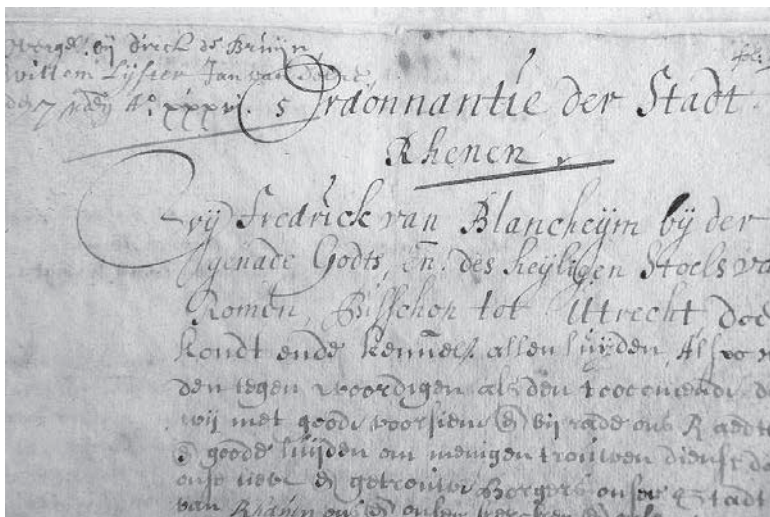 overgel. bij Dirck de Bruijn,
Willem Lijster Jan van
de 7 A° xxxvi. 5
Ordonnantie der Stadt
Rhenen
Wij Fredrick van Blancheym bij der
genade Godts, en des heyligen Stoels va
Romen, Bisschop tot Utrecht doe
kondt ende kennel allen luijden, Alsoo
den tegen woordigen als den toecomende
wij met goede voorsien en bij rade ons Raedt
en goede luijden om menigen trouwen dienst
onse lieve en getrouwe Borgers onser Stadt
van Rhenen ons en onsen